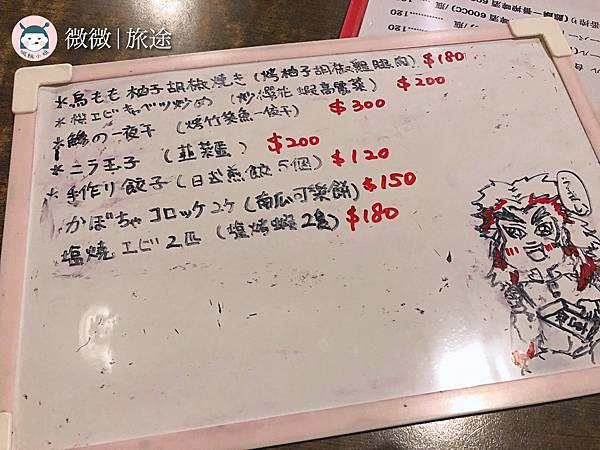 微微|旅途
*鳥もも柚子胡椒焼き(烤柚子胡椒雞腿肉) $180
*桜エビキャベツ炒め (炒櫻花蝦高麗菜) $200
*鯵の一夜干 (烤竹筴魚一夜干) $300
*ニラ玉子 (韮菜蛋) $200
*手作り餃子(日式煎餃5個) $120
かぼちゃコロッケ2ケ(南瓜可樂餅) $150
塩焼エビ2匹 (塩烤蝦2隻) $180